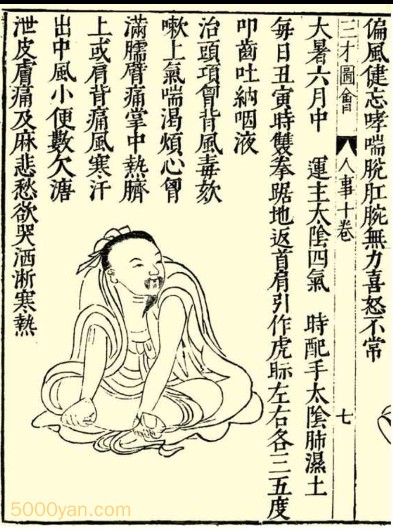 偏風健忘哮喘脫肛腕無力喜怒不常
三才圖會 人事十卷 七
大暑六月中 運主太陰四氣 時配手太陰肺濕土
每日丑寅時雙拳踞地返首肩引作虎視左右各三五度
叩齒吐納咽液
治頭項胷背風毒欬
嗽上氣喘渴煩心胷
滿臑臂痛掌中熱臍
上或肩背痛風寒汗
出中風小便數欠溏
泄皮膚痛及麻悲愁欲哭洒淅寒熱
5000yan.com